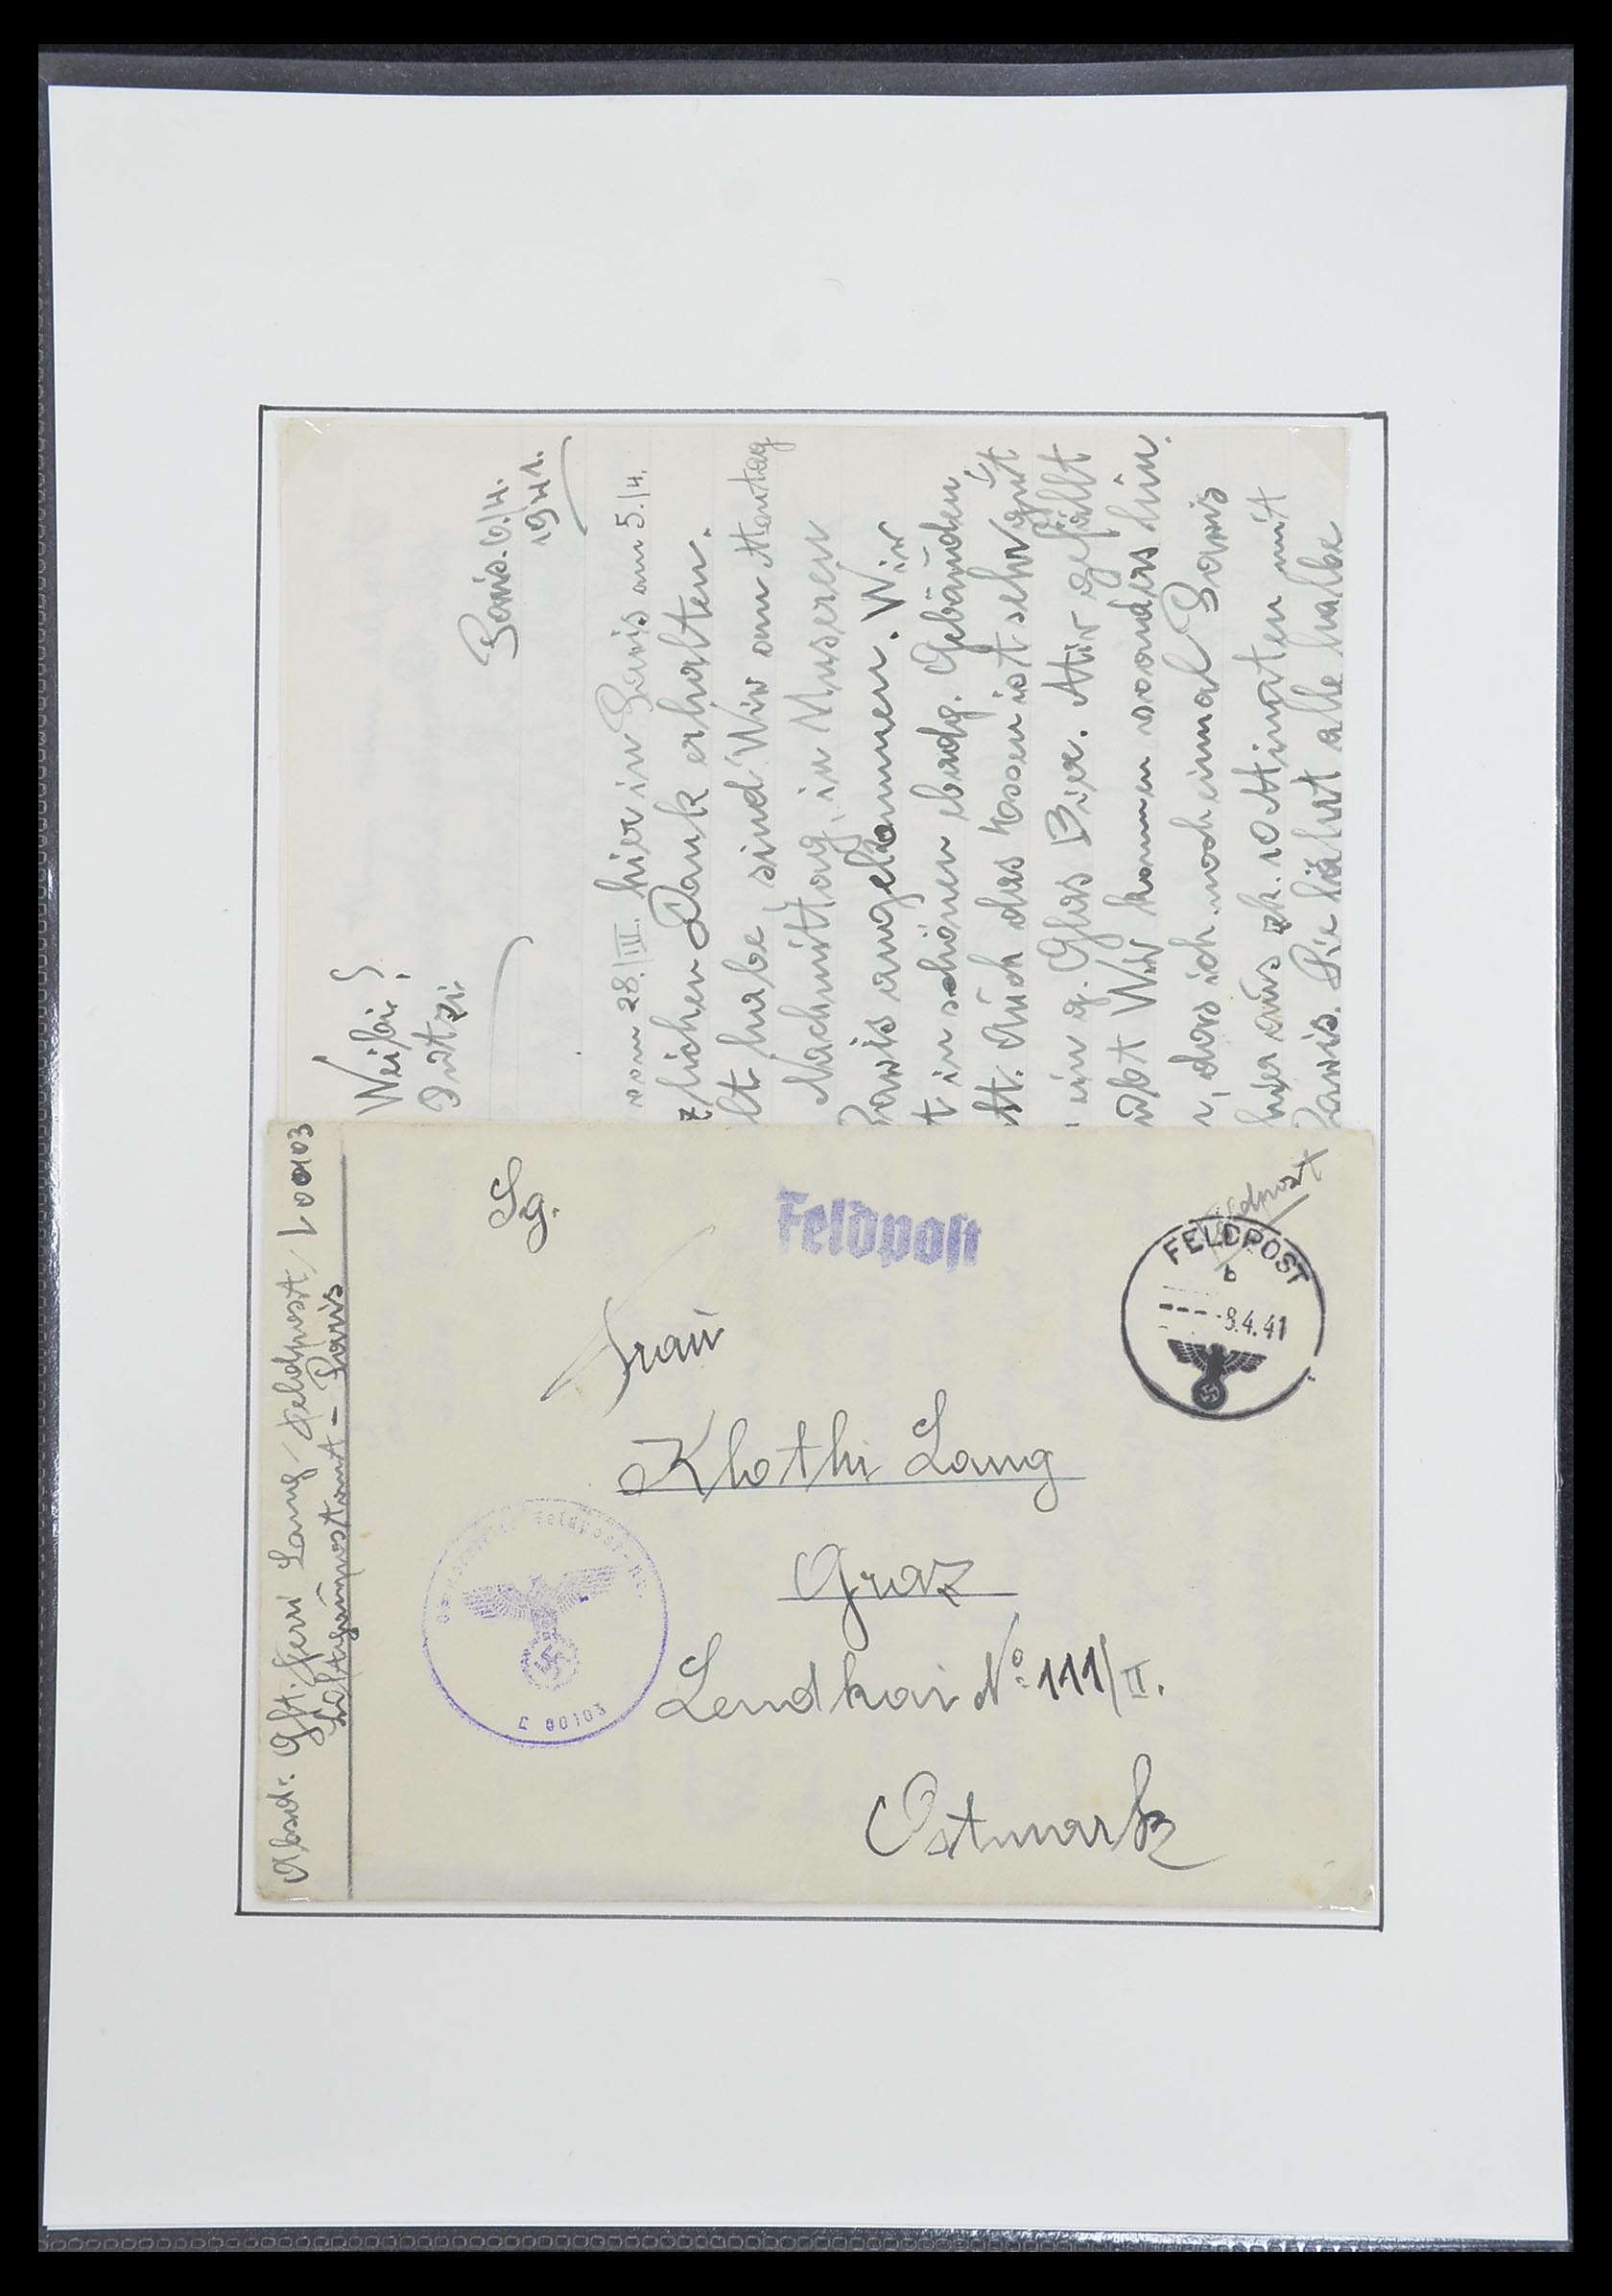 Weibi!
Putzi
Paris. 6./4.
1941.
vom 28./III. hier in Paris am 5./4.
zlichen Dank erhalten.
lt habe, sind Wir am Montag
Nachmittag, in Unseren
Paris angekommen. Wir
t in schönen Gebäuden
st. Auch das Essen ist sehr gut
ein g. Glas Bier. Mir gefällt
Wir kommen woanders hin.
n, das ich noch einmal Paris
hier aus zk. 10 Minuten mit
Paris. Die fährt alle halbe
Absdr. Gft. Ferri Lang Feldpost L 00103
Luftgaupostamt - Paris
Sg.
Feldpost
Feldpost
FELDPOST
b
-8.4.41
Frau
Klothi Lang
Graz
Lendkai No 111/II.
Ostmark
Feldpost-Nr.
L 00103